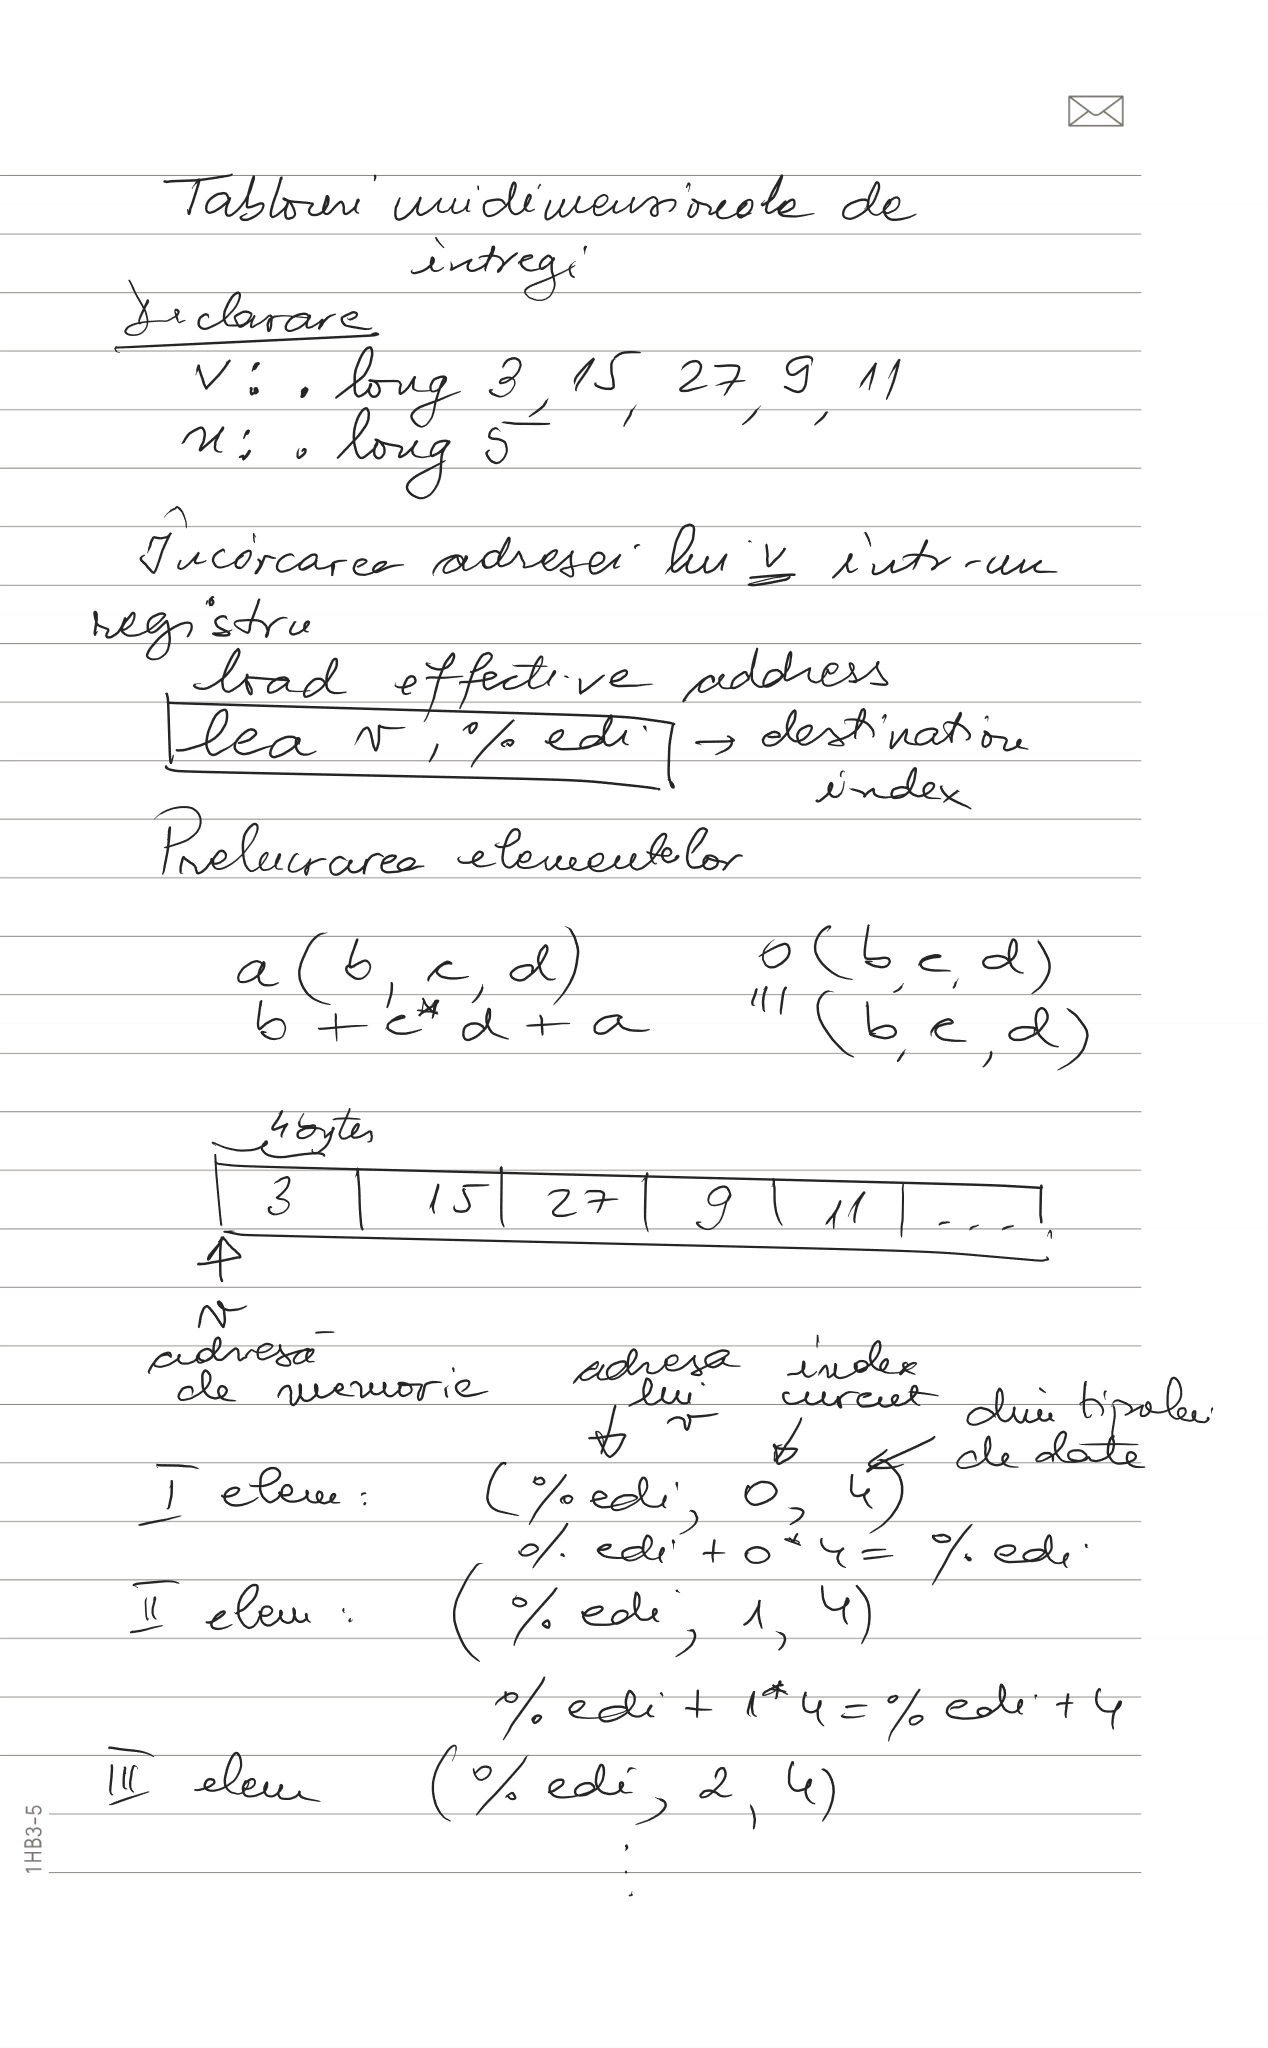 Tablouri unidimensionale de
întregi
Declarare
v: .long 3, 15, 27, 9, 11
n: .long 5
Încărcarea adresei lui v într-un
registru
load effective address
lea v, %edi → destination
index
Prelucrarea elementelor
a(b, c, d) 0(b, c, d)
b + c*d + a (b, c, d)
4 bytes
3 15 27 9 11 ...
v
adresă
de memorie
adresa lui v
index curent
din tipolul
de date
I elem: (%edi, 0, 4)
%edi + 0*4 = %edi
II elem: (%edi, 1, 4)
%edi + 1*4 = %edi + 4
III elem (%edi, 2, 4)
1HB3-5